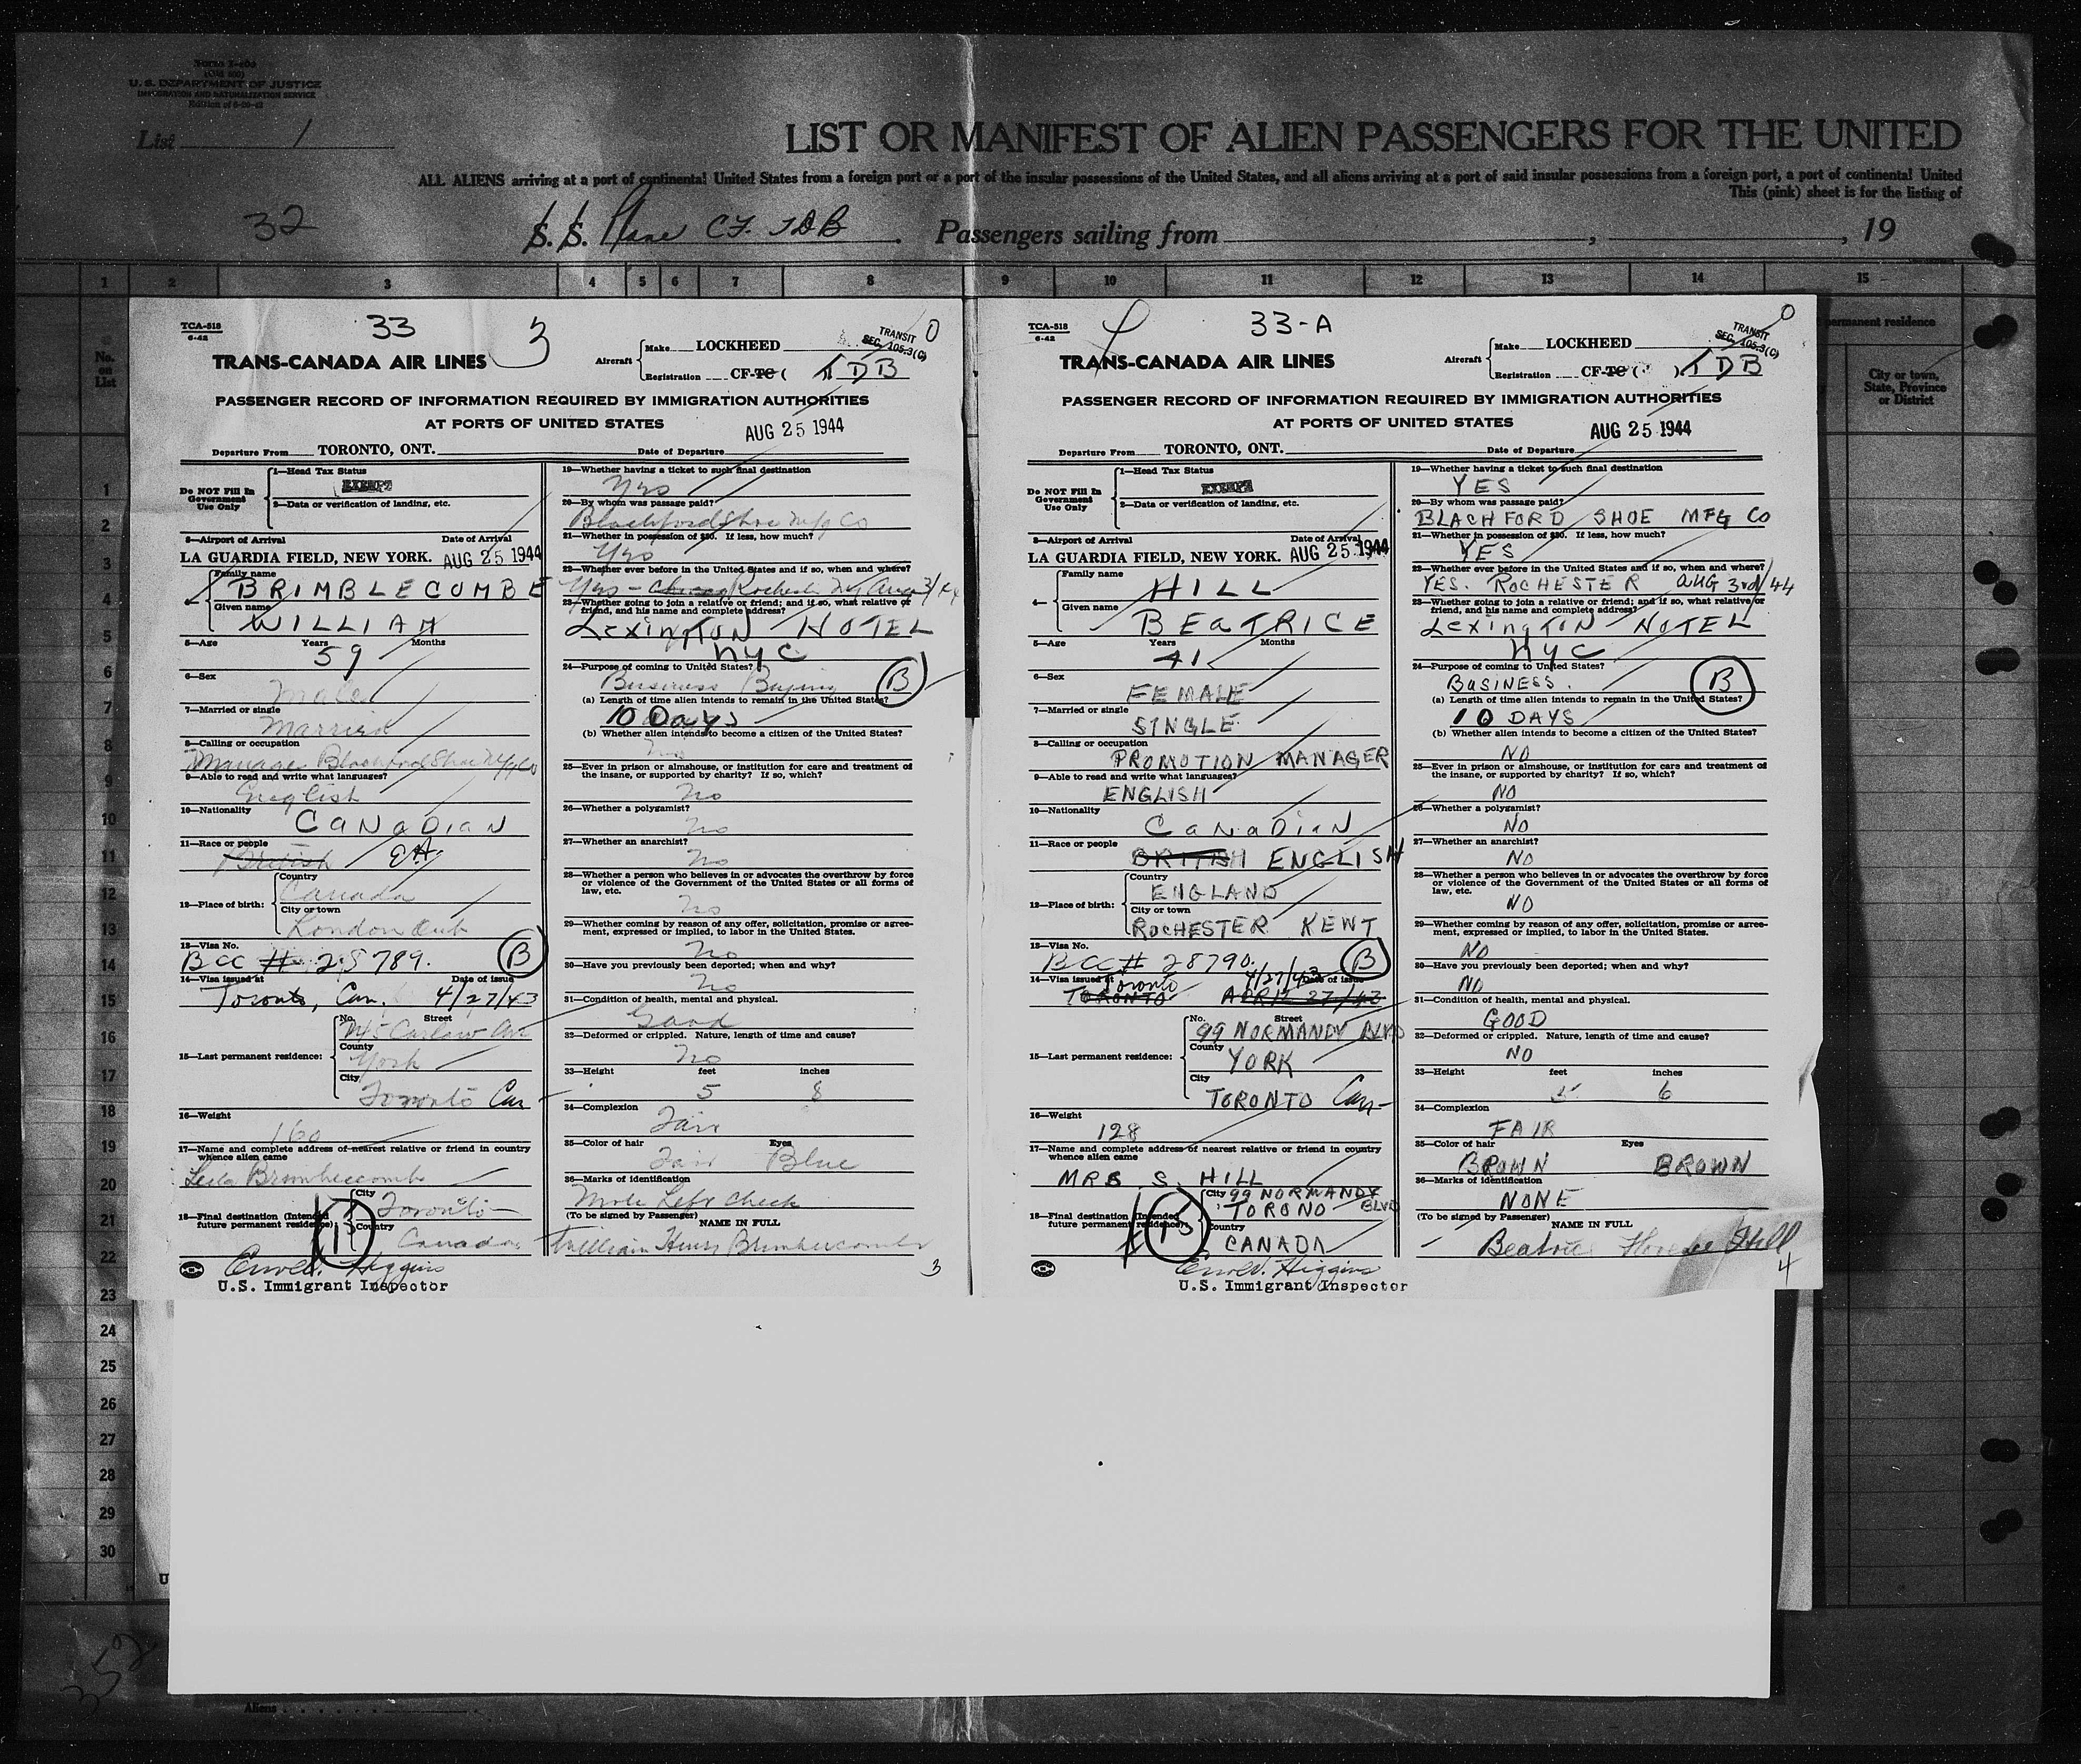 Form I-404
U. S. DEPARTMENT OF JUSTICE
IMMIGRATION AND NATURALIZATION SERVICE
List 1
LIST OR MANIFEST OF ALIEN PASSENGERS FOR THE UNITED
ALL ALIENS arriving at a port of continental United States from a foreign port or a port of the insular possessions of the United States, and all aliens arriving at a port of said insular possessions from a foreign port, a port of continental United
This (pink) sheet is for the listing of
32 S. S. Plane CF. TDB Passengers sailing from , , 19
1 2 3 4 5 6 7 8 9 10 11 12 13 14 15
No. on List
permanent residence
City or town, State, Province or District
1
2
3
4
5
6
7
8
9
10
11
12
13
14
15
16
17
18
19
20
21
22
23
24
25
26
27
28
29
30
TCA-518
6-42
33 3
TRANSIT 0
SEC. 105.3(C)
TRANS-CANADA AIR LINES
Aircraft Make LOCKHEED
Registration CF-TC ( ) TDB
PASSENGER RECORD OF INFORMATION REQUIRED BY IMMIGRATION AUTHORITIES
AT PORTS OF UNITED STATES
AUG 25 1944
Departure From TORONTO, ONT. Date of Departure
Do NOT Fill In Government Use Only
1—Head Tax Status
EXEMPT
2—Data or verification of landing, etc.
3—Airport of Arrival Date of Arrival
LA GUARDIA FIELD, NEW YORK. AUG 25 1944
4— Family name
BRIMBLECOMBE
Given name
WILLIAM
5—Age Years Months
59
6—Sex
Male
7—Married or single
Married
8—Calling or occupation
Manager Blachford Shoe Mfg Co
9—Able to read and write what languages?
English
10—Nationality
CANADIAN
11—Race or people
British
12—Place of birth: Country
Canada
City or town
London Ont
13—Visa No.
BCC # 28789. B
14—Visa issued at Date of issue
Toronto, Can. 4/27/43
15—Last permanent residence: No. Street
Carlaw Ave
County
York
City
Toronto Can
16—Weight
160
17—Name and complete address of nearest relative or friend in country
whence alien came
Brimblecombe
City
Toronto
18—Final destination (Intended
future permanent residence):
Country
Canada
Higgins
U.S. Immigrant Inspector
19—Whether having a ticket to such final destination
Yes
20—By whom was passage paid?
Blachford Shoe Mfg Co
21—Whether in possession of $50. If less, how much?
Yes
22—Whether ever before in the United States and if so, when and where?
Yes - Rochester NY Aug 3/44
23—Whether going to join a relative or friend; and if so, what relative or
friend, and his name and complete address?
LEXINGTON HOTEL
NYC
24—Purpose of coming to United States?
Business Buying B
(a) Length of time alien intends to remain in the United States?
10 Days
(b) Whether alien intends to become a citizen of the United States?
No
25—Ever in prison or almshouse, or institution for care and treatment of
the insane, or supported by charity? If so, which?
No
26—Whether a polygamist?
No
27—Whether an anarchist?
No
28—Whether a person who believes in or advocates the overthrow by force
or violence of the Government of the United States or all forms of
law, etc.
No
29—Whether coming by reason of any offer, solicitation, promise or agree-
ment, expressed or implied, to labor in the United States.
No
30—Have you previously been deported; when and why?
No
31—Condition of health, mental and physical.
Good
32—Deformed or crippled. Nature, length of time and cause?
No
33—Height feet inches
5 8
34—Complexion
Fair
35—Color of hair Eyes
Fair Blue
36—Marks of identification
Mole Left Cheek
(To be signed by Passenger) NAME IN FULL
William Henry Brimblecombe
3
TCA-518
6-42
33-A
TRANSIT 0
SEC. 105.3(C)
TRANS-CANADA AIR LINES
Aircraft Make LOCKHEED
Registration CF-TC ( ) TDB
PASSENGER RECORD OF INFORMATION REQUIRED BY IMMIGRATION AUTHORITIES
AT PORTS OF UNITED STATES
AUG 25 1944
Departure From TORONTO, ONT. Date of Departure
Do NOT Fill In Government Use Only
1—Head Tax Status
EXEMPT
2—Data or verification of landing, etc.
3—Airport of Arrival Date of Arrival
LA GUARDIA FIELD, NEW YORK. AUG 25 1944
4— Family name
HILL
Given name
BEATRICE
5—Age Years Months
41
6—Sex
FEMALE
7—Married or single
SINGLE
8—Calling or occupation
PROMOTION MANAGER
9—Able to read and write what languages?
ENGLISH
10—Nationality
CANADIAN
11—Race or people
BRITISH ENGLISH
12—Place of birth: Country
ENGLAND
City or town
ROCHESTER KENT
13—Visa No.
BCC # 28790. B
14—Visa issued at Date of issue
Toronto 4/27/43
TORONTO APRIL 27/43
15—Last permanent residence: No. Street
99 NORMANDY BLVD
County
YORK
City
TORONTO Can
16—Weight
128
17—Name and complete address of nearest relative or friend in country
whence alien came
MRS S. HILL
City 99 NORMANDY BLVD
TORONO
18—Final destination (Intended
future permanent residence):
Country
CANADA
Higgins
U.S. Immigrant Inspector
19—Whether having a ticket to such final destination
YES
20—By whom was passage paid?
BLACHFORD SHOE MFG CO
21—Whether in possession of $50. If less, how much?
YES
22—Whether ever before in the United States and if so, when and where?
YES. ROCHESTER AUG 3rd/44
23—Whether going to join a relative or friend; and if so, what relative or
friend, and his name and complete address?
LEXINGTON HOTEL
NYC
24—Purpose of coming to United States?
BUSINESS. B
(a) Length of time alien intends to remain in the United States?
10 DAYS
(b) Whether alien intends to become a citizen of the United States?
NO
25—Ever in prison or almshouse, or institution for care and treatment of
the insane, or supported by charity? If so, which?
NO
26—Whether a polygamist?
NO
27—Whether an anarchist?
NO
28—Whether a person who believes in or advocates the overthrow by force
or violence of the Government of the United States or all forms of
law, etc.
NO
29—Whether coming by reason of any offer, solicitation, promise or agree-
ment, expressed or implied, to labor in the United States.
NO
30—Have you previously been deported; when and why?
NO
31—Condition of health, mental and physical.
GOOD
32—Deformed or crippled. Nature, length of time and cause?
NO
33—Height feet inches
5 6
34—Complexion
FAIR
35—Color of hair Eyes
BROWN BROWN
36—Marks of identification
NONE
(To be signed by Passenger) NAME IN FULL
Beatrice Florence Hill
4
Aliens